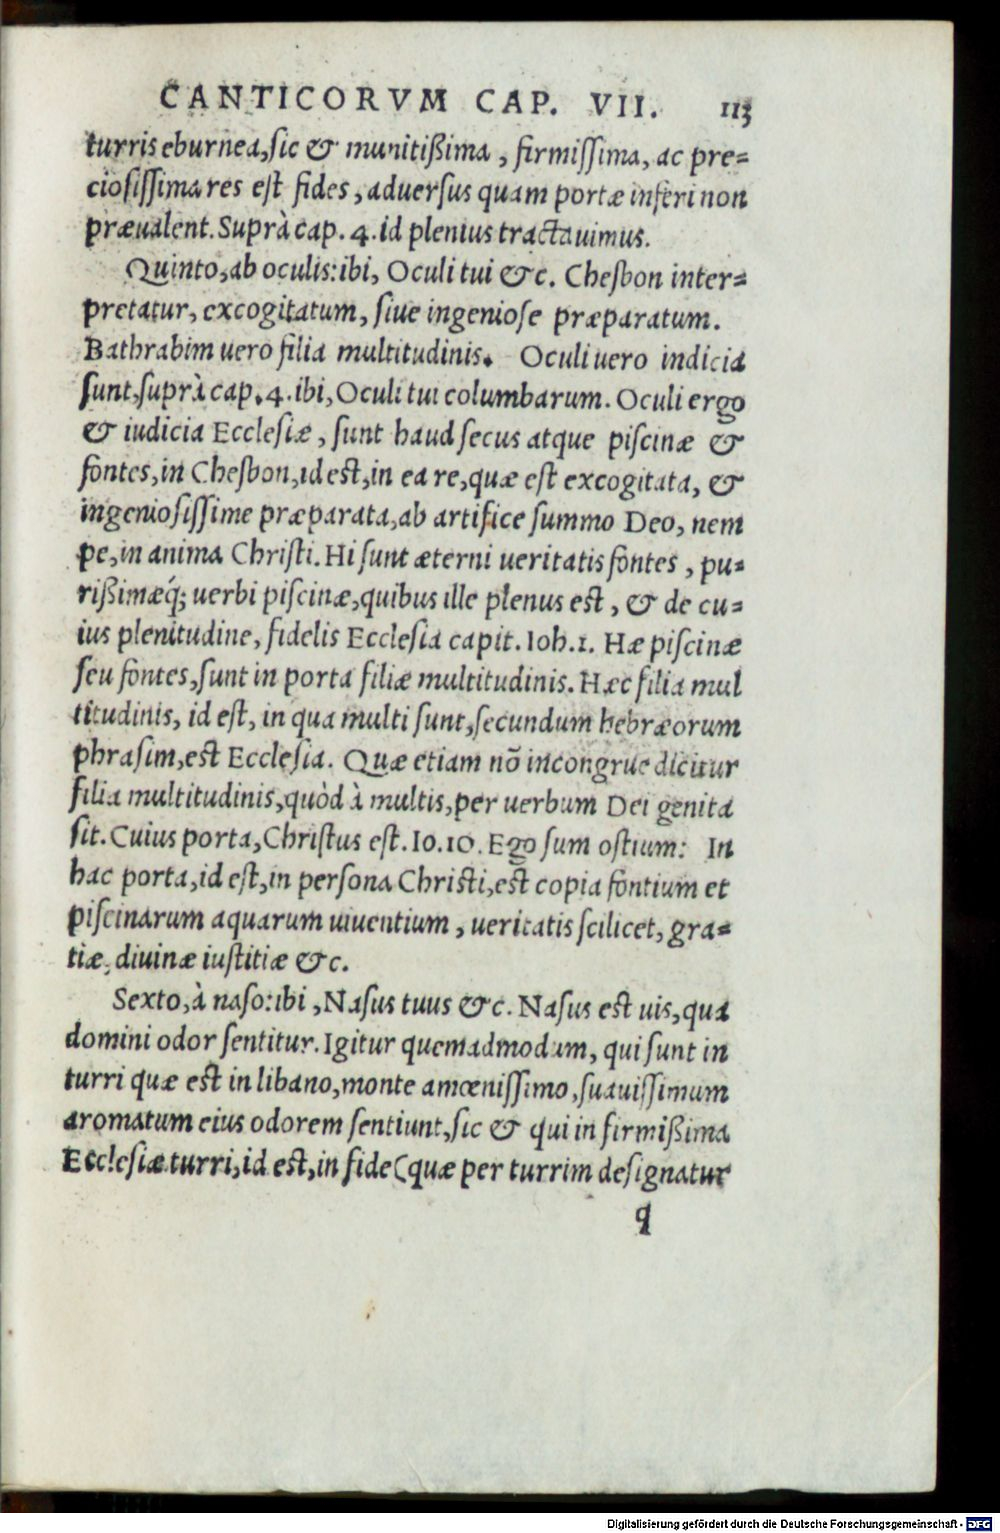 CANTICORVM CAP. VII. 113
turris eburnea, sic & munitißima, firmissima, ac pre=
ciosissima res est fides, aduersus quam portæ inferi non
præualent. Suprà cap. 4. id plenius tractauimus.
Quinto, ab oculis: ibi, Oculi tui &c. Chesbon inter=
pretatur, excogitatum, siue ingeniose præparatum.
Bathrabim uero filia multitudinis. Oculi uero indicia
sunt, suprà cap. 4. ibi, Oculi tui columbarum. Oculi ergo
& iudicia Ecclesiæ, sunt haud secus atque piscinæ &
fontes, in Chesbon, id est, in ea re, quæ est excogitata, &
ingeniosissime præparata, ab artifice summo Deo, nem
pe, in anima Christi. Hi sunt æterni ueritatis fontes, pu=
rißimæq́; uerbi piscinæ, quibus ille plenus est, & de cu=
ius plenitudine, fidelis Ecclesia capit. Ioh. 1. Hæ piscinæ
seu fontes, sunt in porta filiæ multitudinis. Hæc filia mul
titudinis, id est, in qua multi sunt, secundum hebræorum
phrasim, est Ecclesia. Quæ etiam nō incongrue dicitur
filia multitudinis, quòd à multis, per uerbum Dei genita
sit. Cuius porta, Christus est. Io. 10. Ego sum ostium: In
hac porta, id est, in persona Christi, est copia fontium et
piscinarum aquarum uiuentium, ueritatis scilicet, gra=
tiæ, diuinæ iustitiæ &c.
Sexto, à naso: ibi, Nasus tuus &c. Nasus est uis, qua
domini odor sentitur. Igitur quemadmodum, qui sunt in
turri quæ est in libano, monte amœnissimo, suauissimum
aromatum eius odorem sentiunt, sic & qui in firmißima
Ecclesiæ turri, id est, in fide (quæ per turrim designatur
q
Digitalisierung gefördert durch die Deutsche Forschungsgemeinschaft - DFG